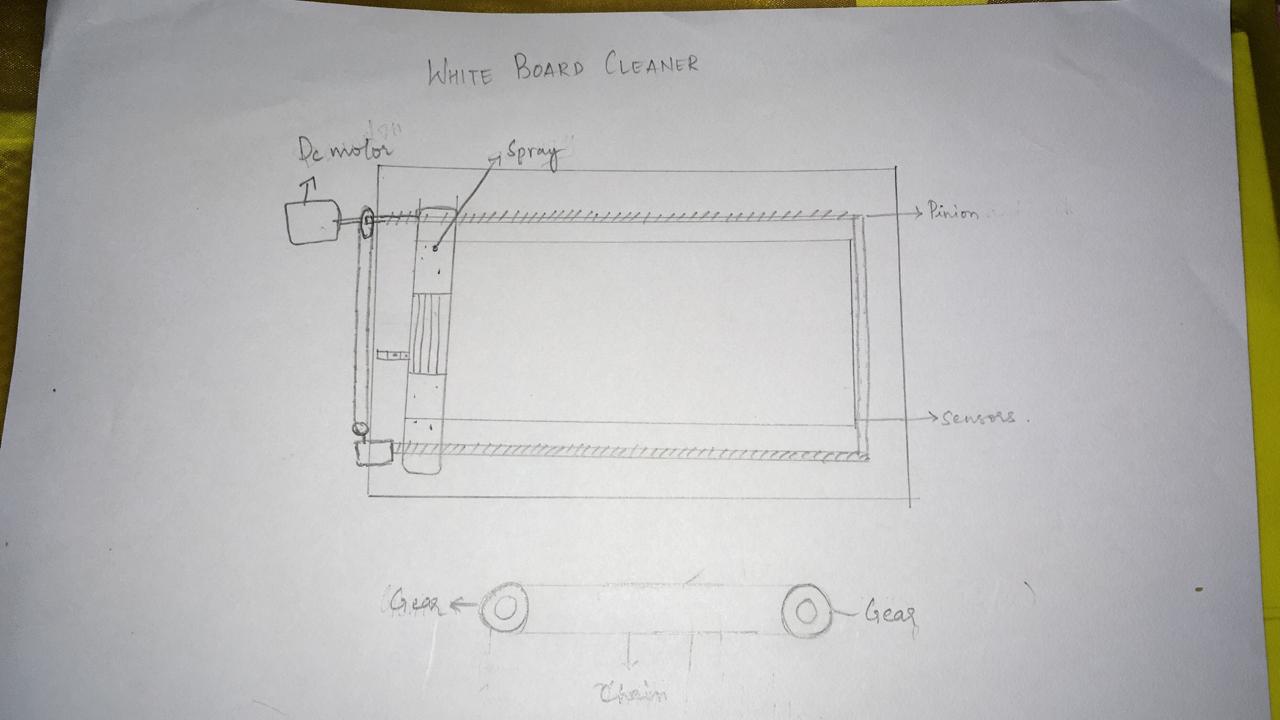 WHITE BOARD CLEANER
Dc motor
Spray
Pinion
Sensors.
Gear
Gear
Chain